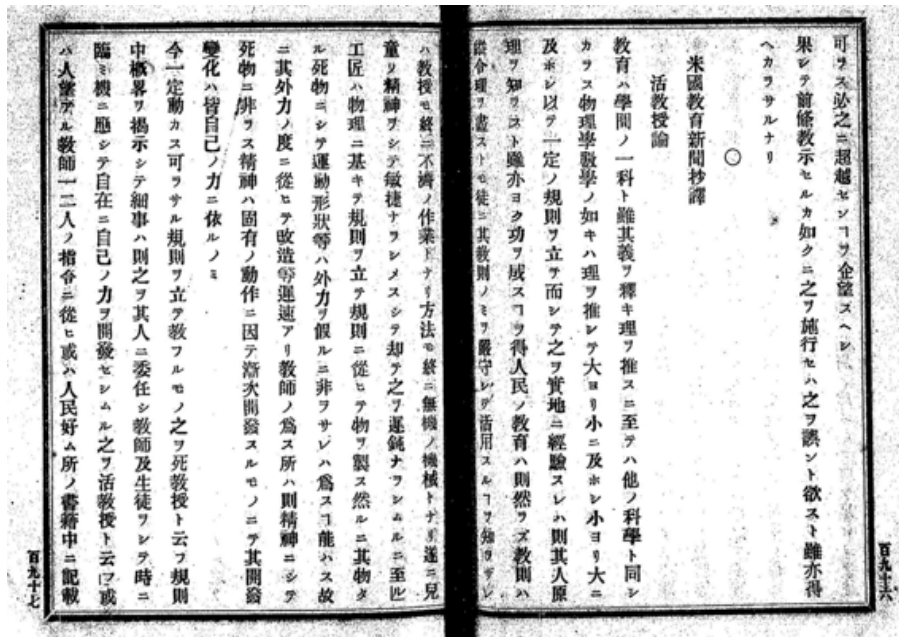 可ラス必之ニ超越センヿヲ企望スヘシ
果シテ前條教示セルカ如クニ之ヲ施行セハ之ヲ誤ント欲スト雖亦得
ヘカラサルナリ
〇
米國教育新聞抄譯
活教授論
教育ハ學問ノ一科ト雖其義ヲ釋キ理ヲ推スニ至テハ他ノ科學ト同シ
カラス物理學數學ノ如キハ理ヲ推シテ大ヨリ小ニ及ホシ小ヨリ大ニ
及ホシ以テ一定ノ規則ヲ立テ而シテ之ヲ實地ニ經驗スレハ則其人原
理ヲ知ラスト雖亦ヨク功ヲ成スヿヲ得人民ノ教育ハ則然ラズ教則ハ
縱令理ヲ盡ストモ徒ニ其教則ノミヲ嚴守シテ活用スルヿヲ知ラザレ
百九十六
ハ教授モ終ニ不濟ノ作業トナリ方法モ終ニ無機ノ機械トナリ遂ニ兒
童ノ精神ヲシテ敏捷ナラシメスシテ却テ之ヲ遲鈍ナラシムルニ至ル
工匠ハ物理ニ基キテ規則ヲ立テ規則ニ從ヒテ物ヲ製ス然ルニ其物タ
ル死物ニシテ運動形狀等ハ外力ヲ假ルニ非ラサレハ爲スヿ能ハス故
ニ其外力ノ度ニ從ヒテ改造等遲速アリ教師ノ爲ス所ハ則精神ニシテ
死物ニ非ラス精神ハ固有ノ動作ニ因テ漸次開發スルモノニテ其開發
變化ハ皆自己ノ力ニ依ルノミ
今一定動カス可ラサル規則ヲ立テ教フルモノ之ヲ死教授ト云フ規則
中概畧ヲ揭示シテ細事ハ則之ヲ其人ニ委任シ教師及生徒ヲシテ時ニ
臨ミ機ニ應シテ自在ニ自己ノ力ヲ開發セシムル之ヲ活教授ト云フ或
ハ人望アル教師一二人ノ指令ニ從ヒ或ハ人民好ム所ノ書籍中ニ記載
百九十七